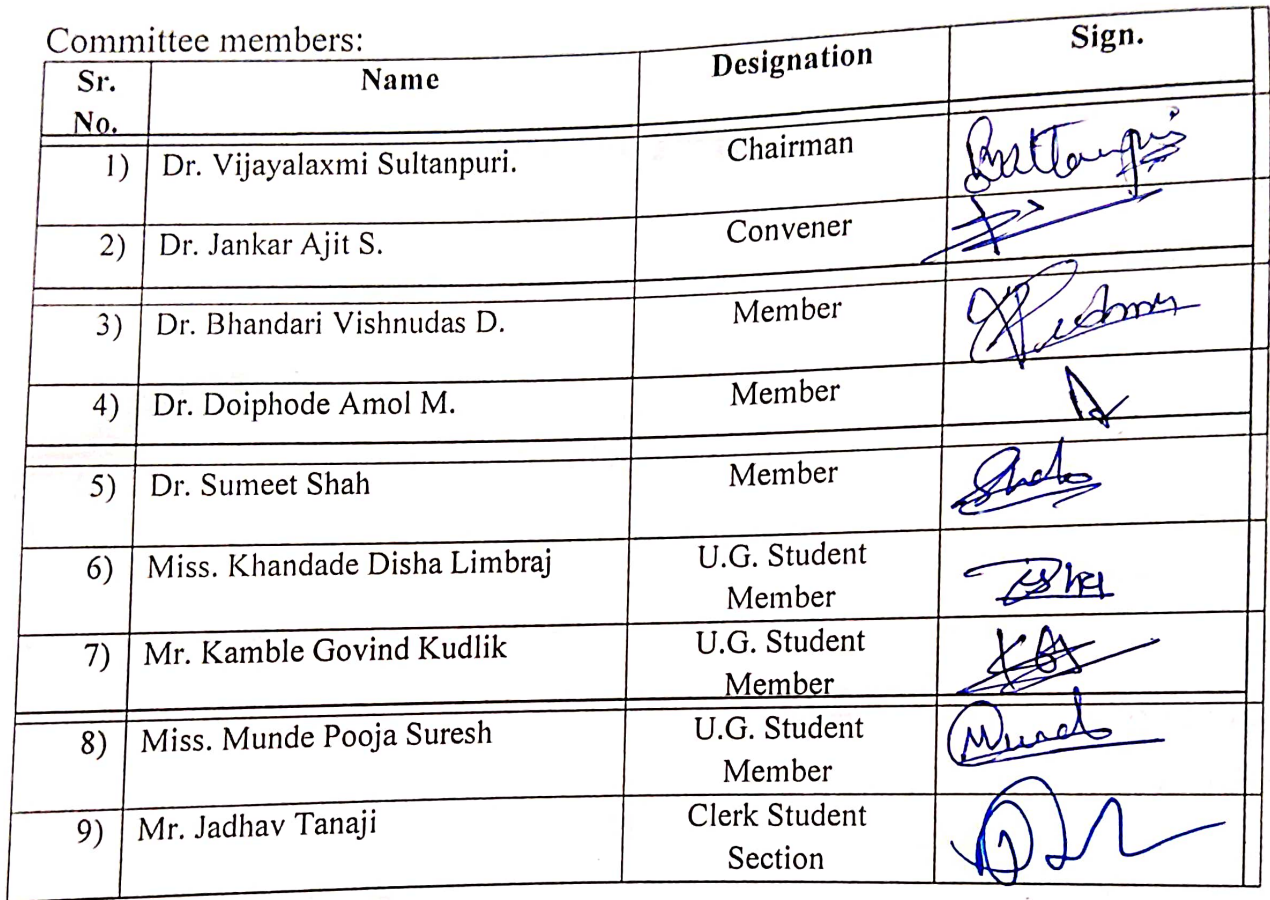 Committee members:
Sr. No. Name Designation Sign.
1) Dr. Vijayalaxmi Sultanpuri. Chairman
2) Dr. Jankar Ajit S. Convener
3) Dr. Bhandari Vishnudas D. Member
4) Dr. Doiphode Amol M. Member
5) Dr. Sumeet Shah Member
6) Miss. Khandade Disha Limbraj U.G. Student
Member
7) Mr. Kamble Govind Kudlik U.G. Student
Member
8) Miss. Munde Pooja Suresh U.G. Student
Member
9) Mr. Jadhav Tanaji Clerk Student
Section